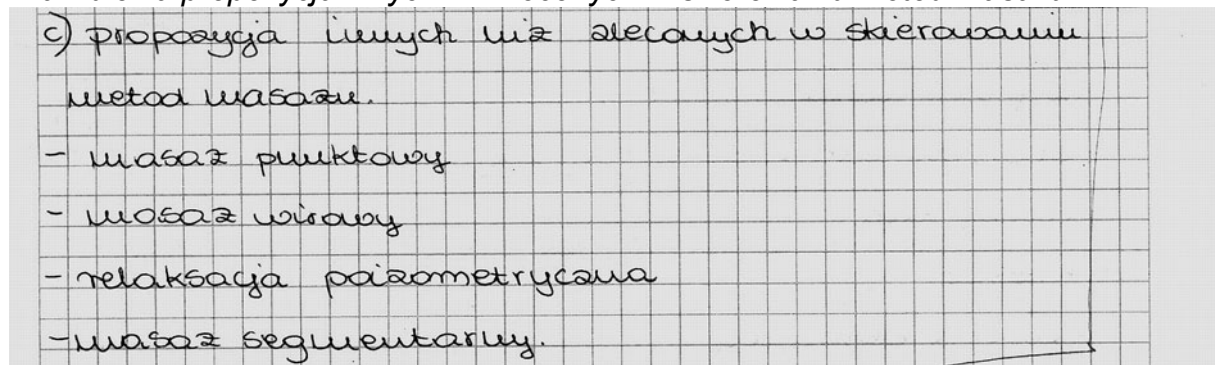 c) propozycja innych niż zlecanych w skierowaniu
metod masażu.
- masaż punktowy
- masaż wirowy
- relaksacja poizometryczna
- masaż segmentarny.